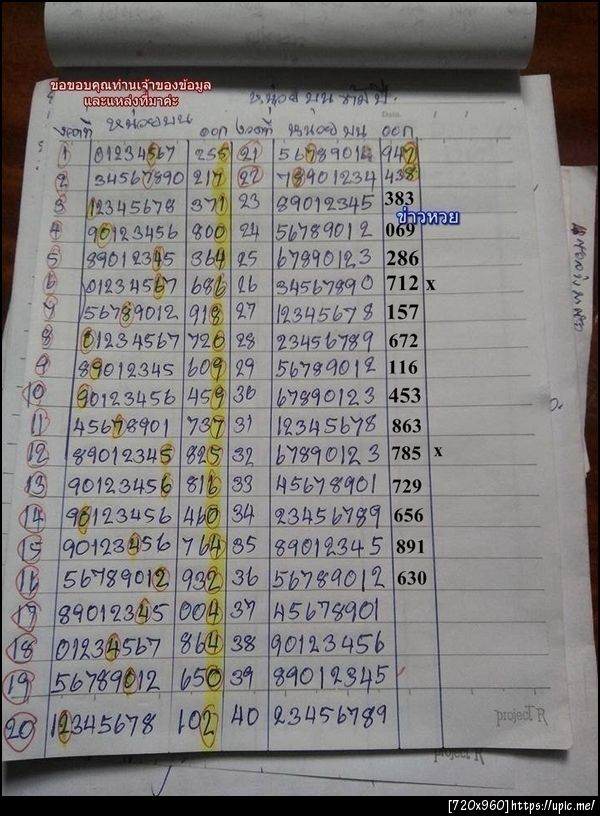 ขอขอบคุณท่านเจ้าของข้อมูล
และแหล่งที่มาค่ะ
หน่วยบน
Data.
งวดที่ หน่วยบน ออก งวดที่ หน่วยบน ออก
1 01234567 255 21 56789014 947
2 34567890 217 22 78901234 438
3 12345678 371 23 89012345 383
ข่าวหวย
4 90123456 800 24 56789012 069
5 89012345 364 25 67890123 286
6 01234567 686 26 34567890 712 x
7 56789012 918 27 12345678 157
8 01234567 720 28 23456789 672
9 89012345 609 29 56789012 116
10 90123456 459 30 67890123 453
11 45678901 737 31 12345678 863
12 89012345 825 32 67890123 785 x
13 90123456 816 33 45678901 729
14 90123456 460 34 23456789 656
15 90123456 764 35 89012345 891
16 56789012 932 36 56789012 630
17 89012345 004 37 45678901
18 01234567 864 38 90123456
19 56789012 650 39 89012345
20 12345678 102 40 23456789
project R
project R
[720x960]https://upic.me/